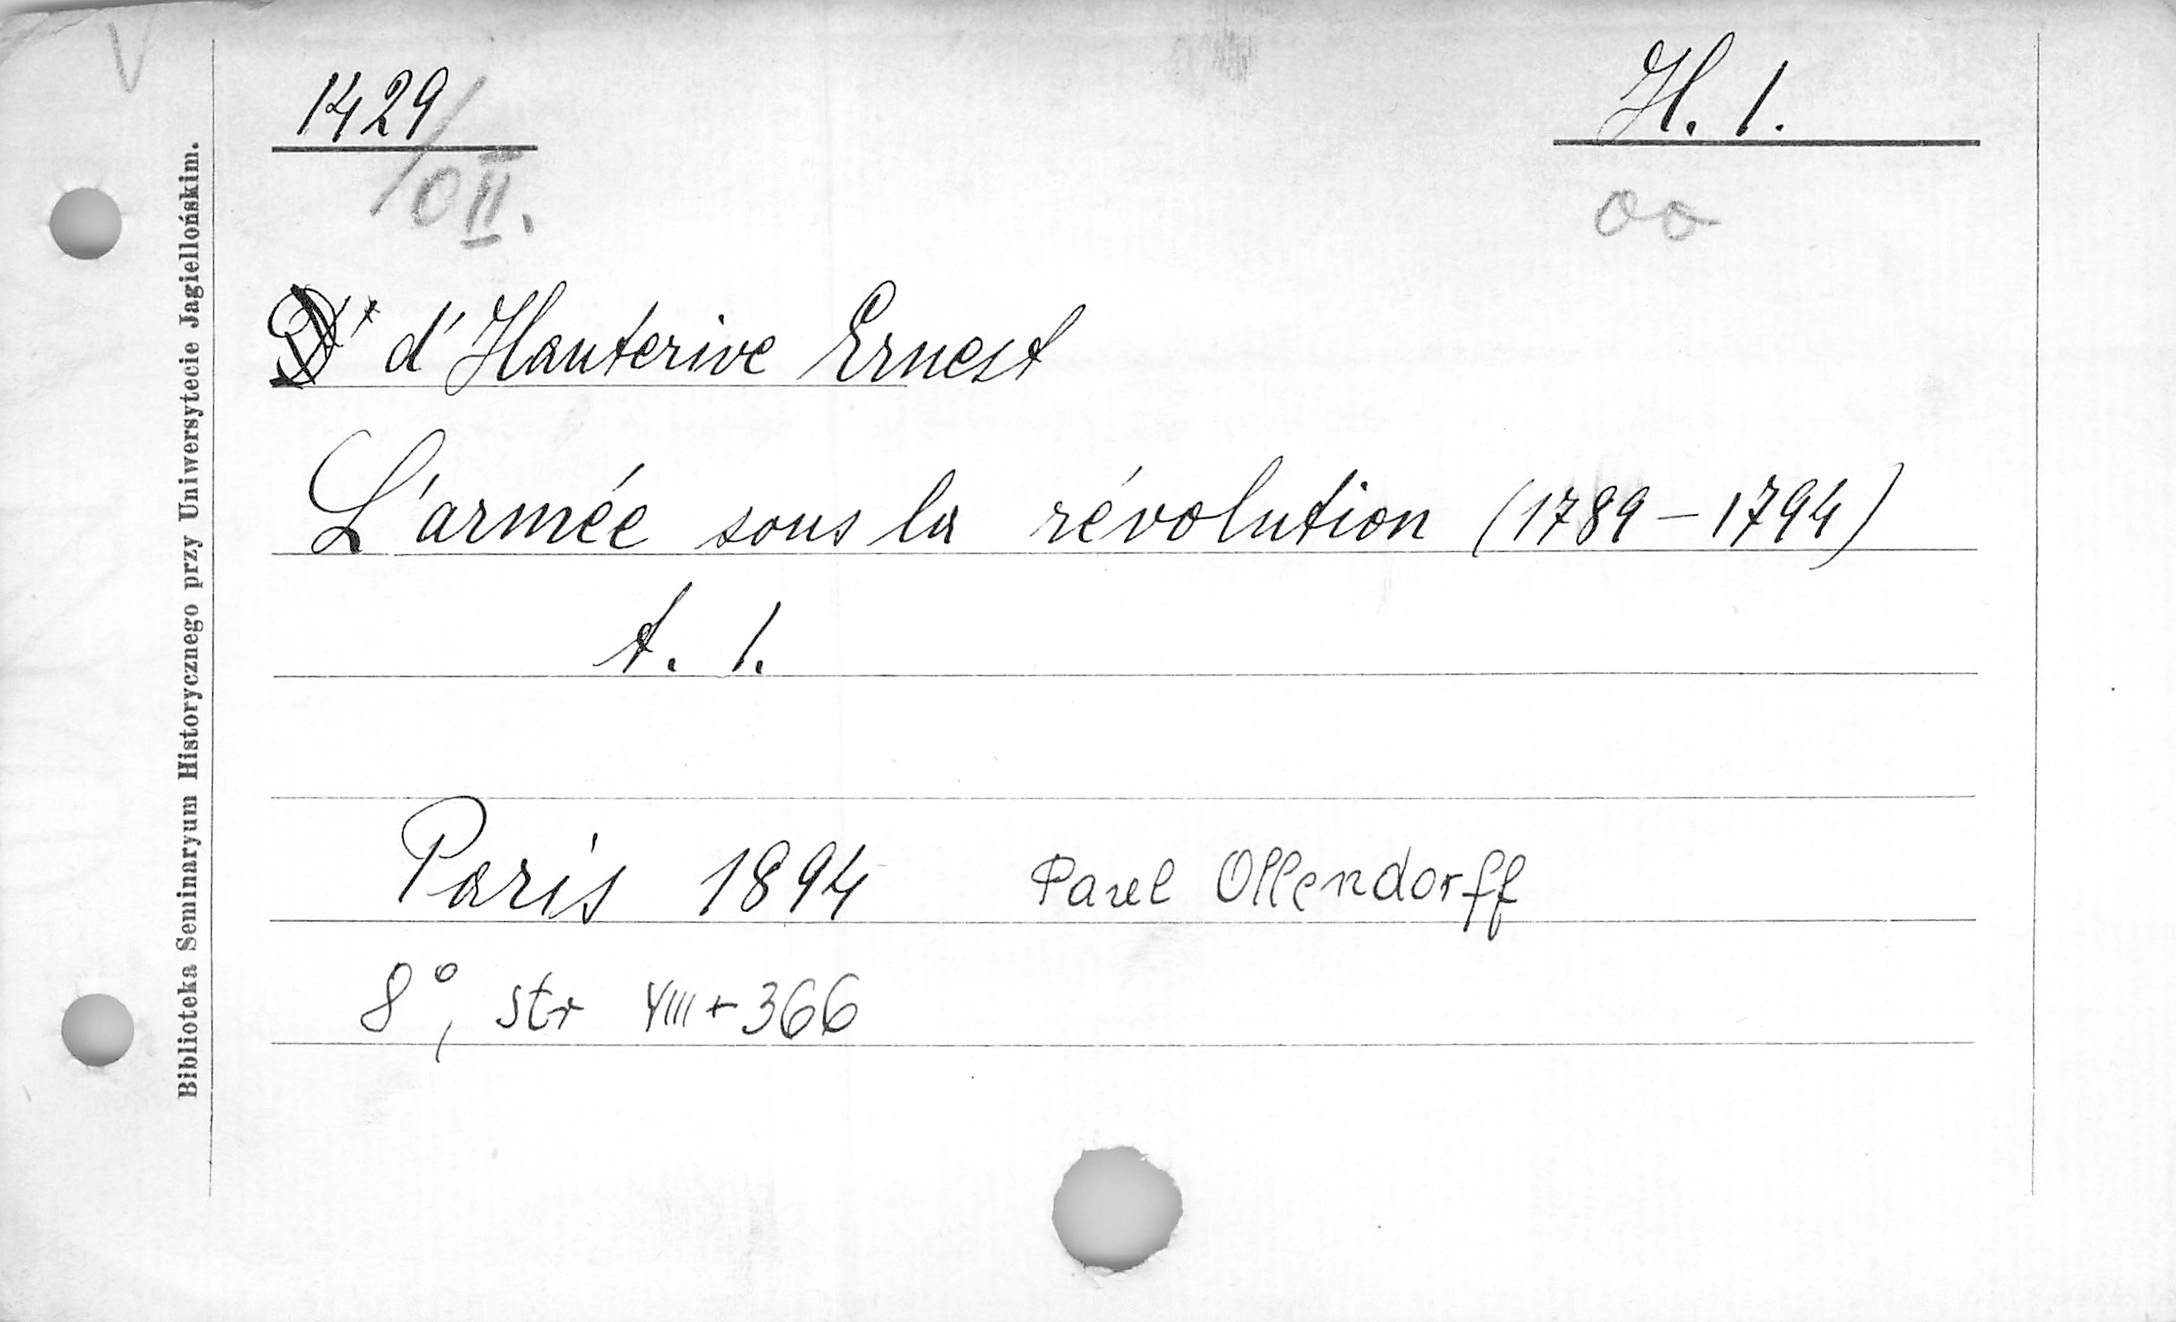 V
1429/
0II.
H. 1.
00
d'Hauterive Ernest
L'armée sous la révolution (1789-1794)
t. 1.
Paris 1894 Paul Ollendorff
8°, str VIII+366
Biblioteka Seminaryun Historycznego przy Uniwersytecie Jagiellońskim.